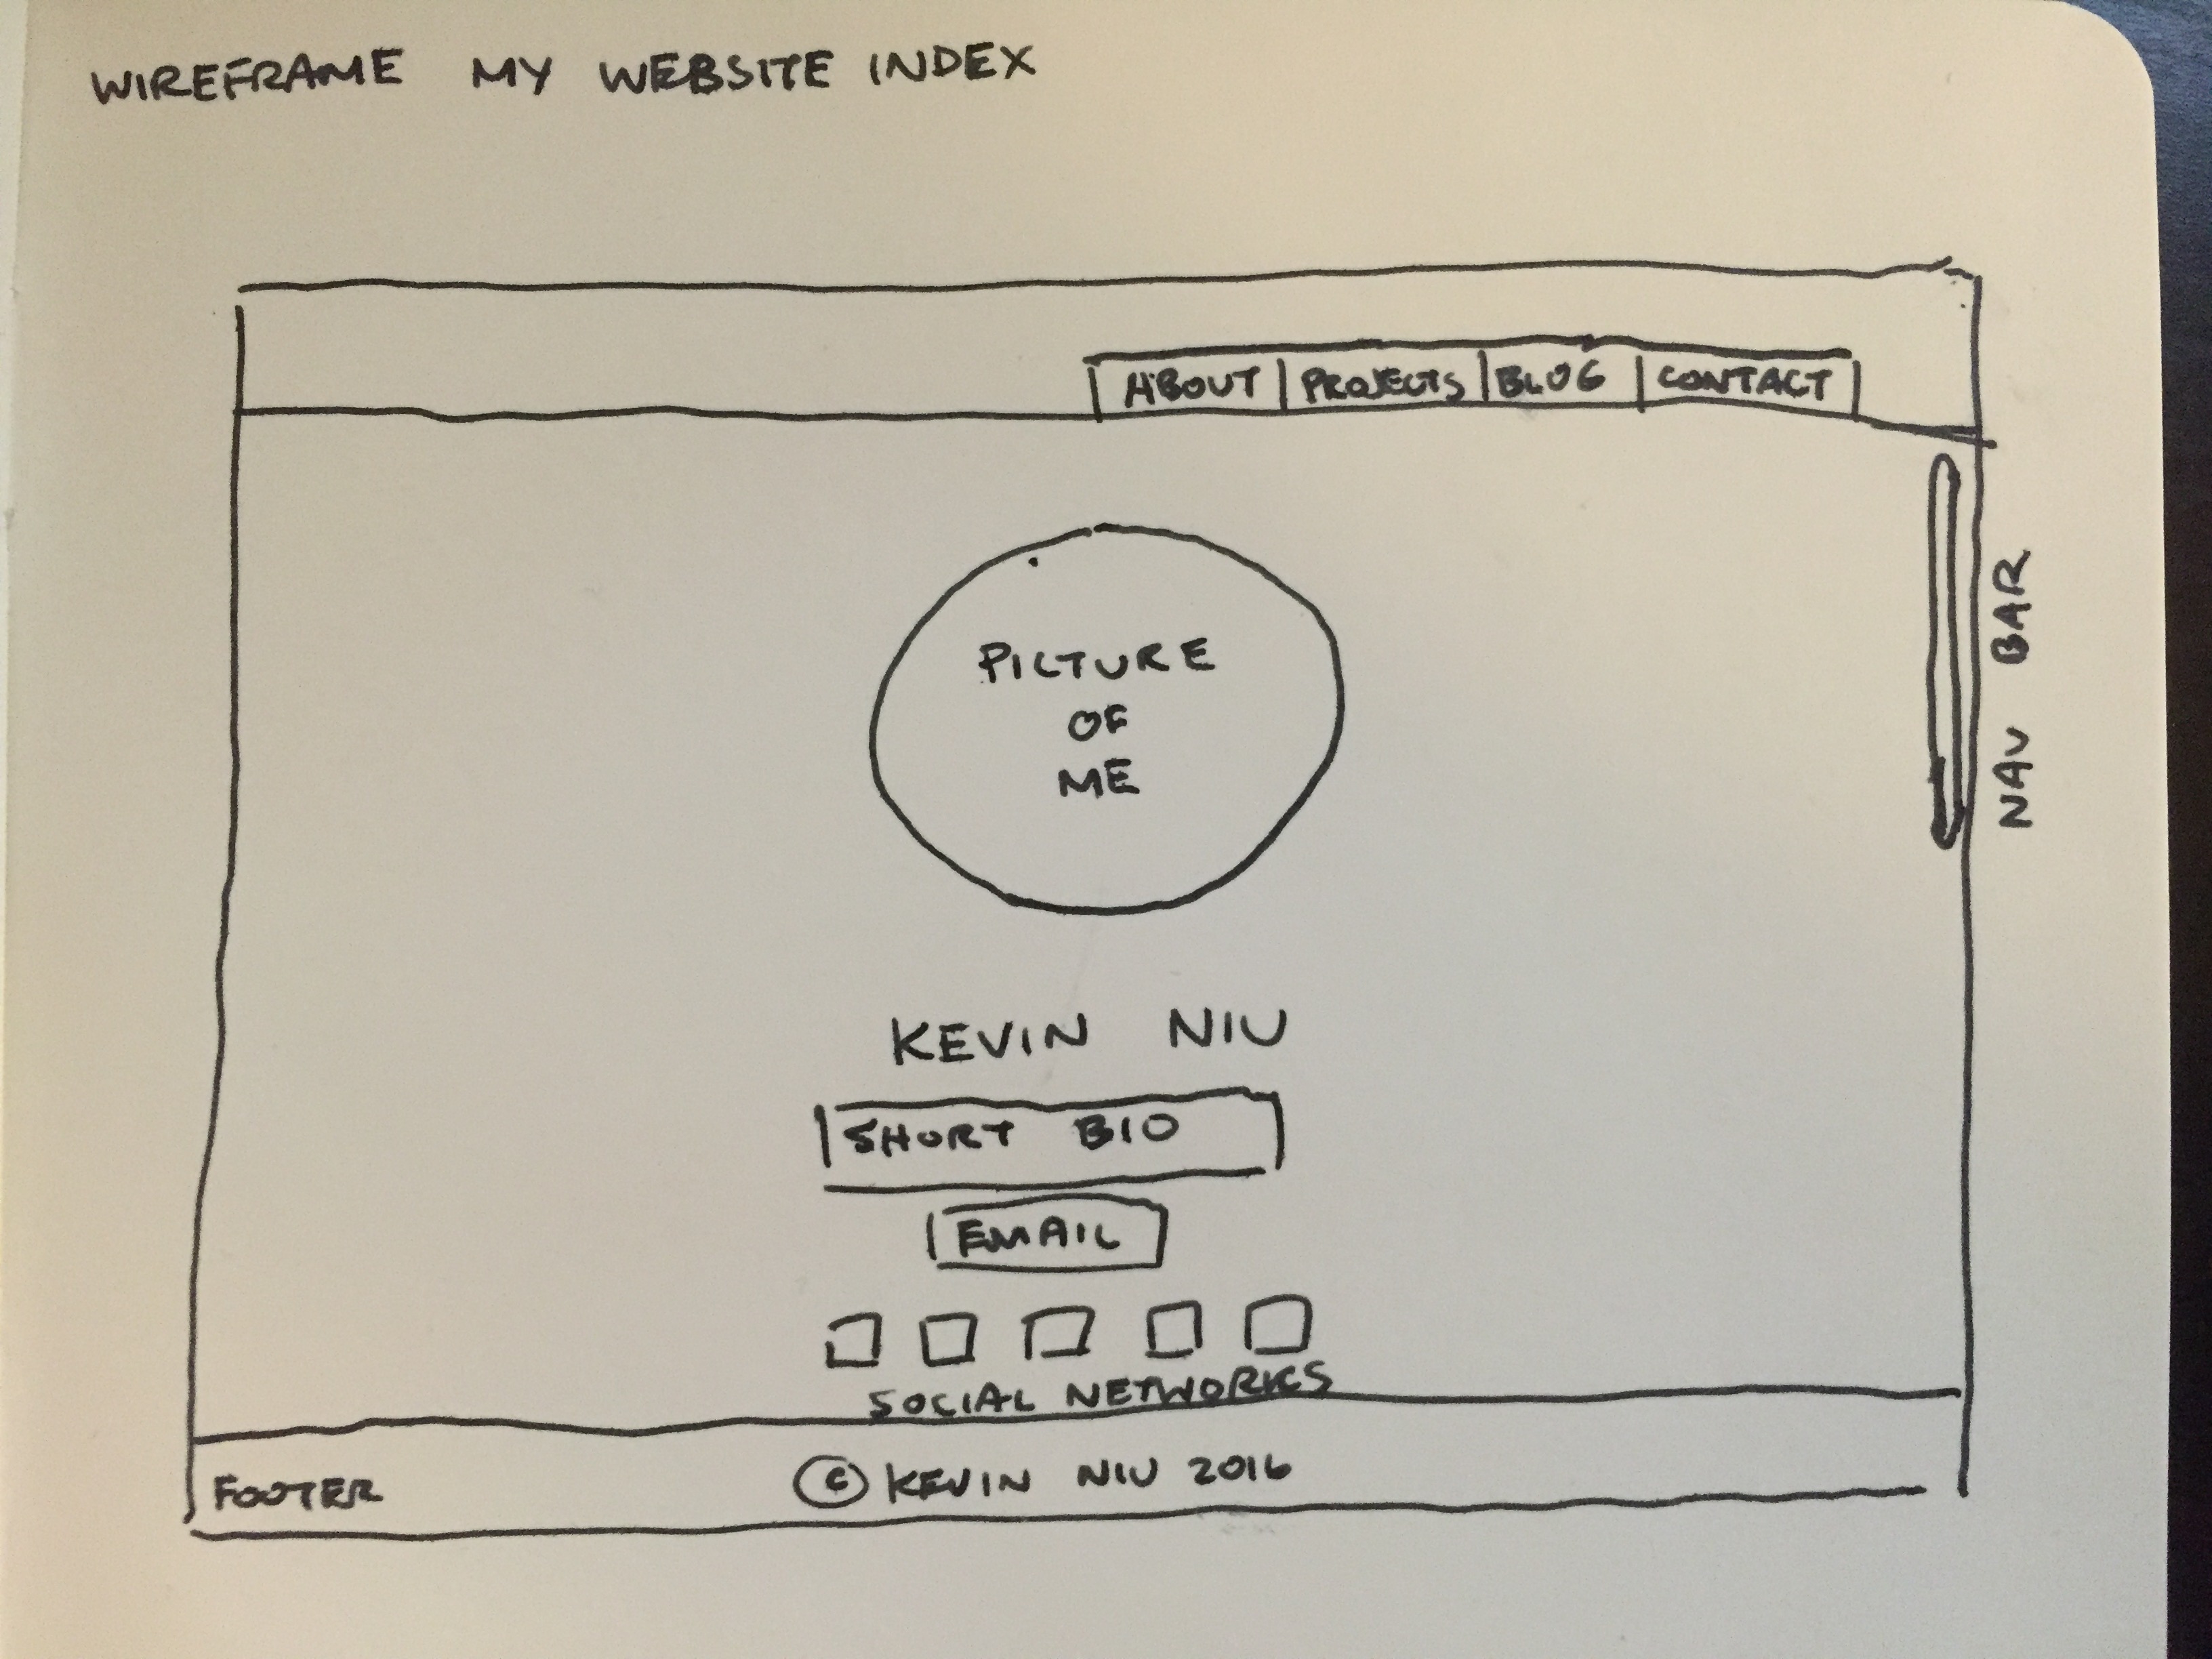 WIREFRAME MY WEBSITE INDEX
ABOUT PROJECTS BLOG CONTACT
PICTURE
OF
ME
NAV BAR
KEVIN NIU
SHORT BIO
EMAIL
SOCIAL NETWORKS
FOOTER © KEVIN NIU 2016